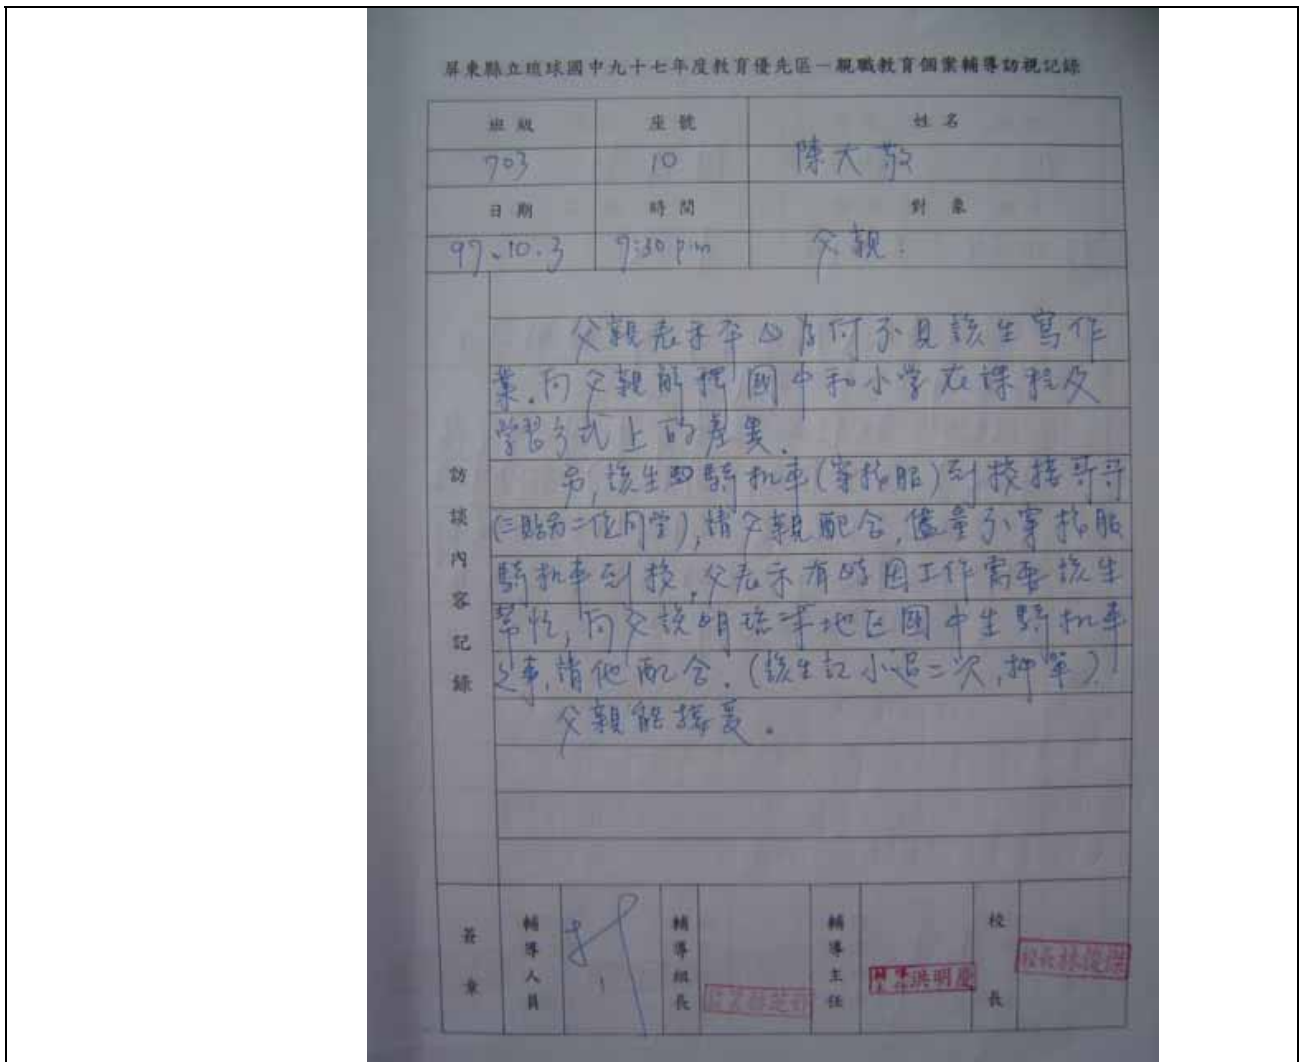 屏東縣立琉球國中九十七年度教育優先區－親職教育個案輔導訪視記錄
班級 座號 姓名
703 10 陳大敬
日期 時間 對象
97.10.3 7:30 pm 父親:
訪談內容記錄
父親表示不必為何不見該生寫作
業.向父親解釋國中和小學在課程及
學習方式上的差異.
另,該生騎机車(穿校服)到校接哥哥
(三貼另二位同學),請父親配合,儘量不穿校服
騎机車到校,父表示有時因工作需要該生
幫忙,向父說明琉球地区國中生騎机車
之事,請他配合.(該生記小過二次,押單).
父親能接受.
簽章 輔導人員 輔導組長 輔導主任 洪明慶 校長 校長林俊傑